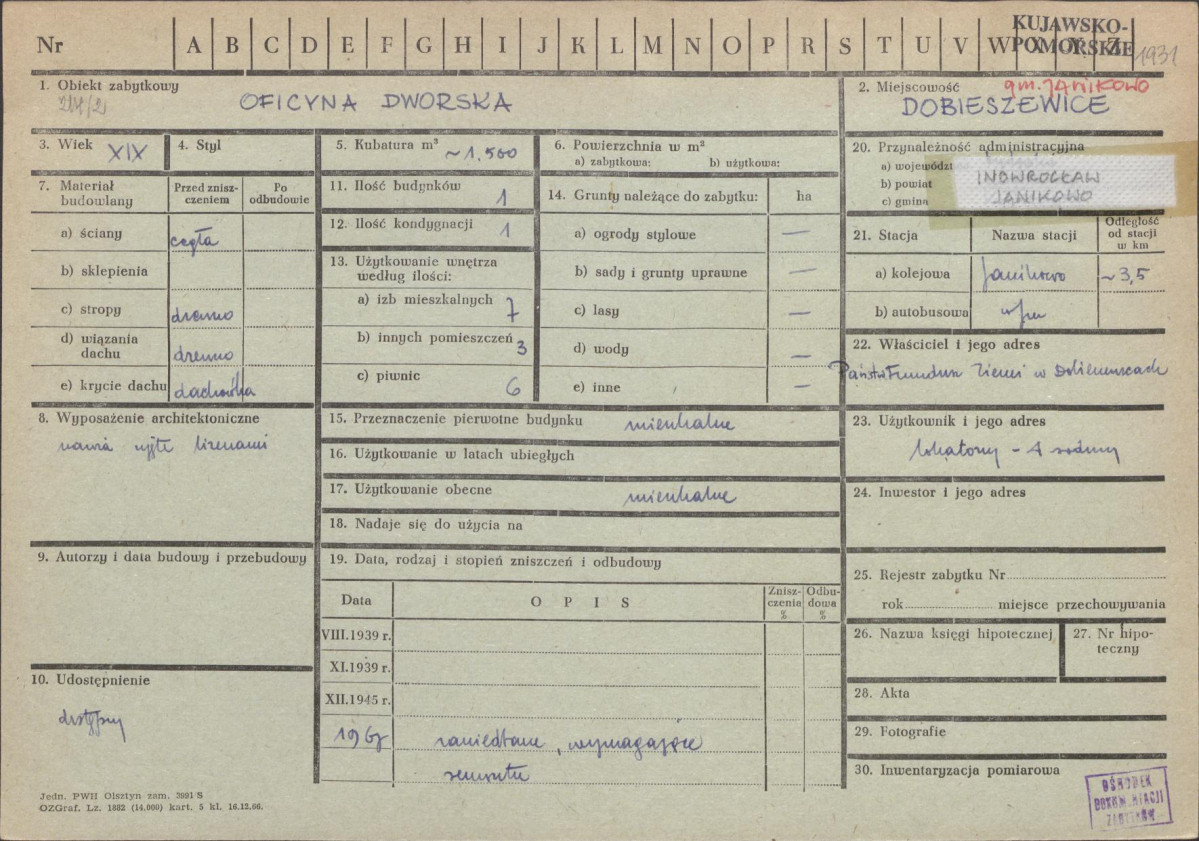 Nr A B C D E F G H I J K L M N O P R S T U V W X Y Z
KUJAWSKO-
POMORSKIE
1931
1. Obiekt zabytkowy
OFICYNA DWORSKA
2. Miejscowość
gm. JANIKOWO
DOBIESZEWICE
3. Wiek XIX
4. Styl
5. Kubatura m³ ~1,500
6. Powierzchnia w m²
a) zabytkowa: b) użytkowa:
7. Materiał
budowlany
Przed znisz-
czeniem
Po
odbudowie
a) ściany cegła
b) sklepienia
c) stropy drewno
d) wiązania
dachu drewno
e) krycie dachu dachówka
8. Wyposażenie architektoniczne
ujęte lizenami
9. Autorzy i data budowy i przebudowy
10. Udostępnienie
dostępny
11. Ilość budynków 1
12. Ilość kondygnacji 1
13. Użytkowanie wnętrza
według ilości:
a) izb mieszkalnych 7
b) innych pomieszczeń 3
c) piwnic 6
14. Grunty należące do zabytku: ha
a) ogrody stylowe —
b) sady i grunty uprawne —
c) lasy —
d) wody —
e) inne —
15. Przeznaczenie pierwotne budynku mieszkalne
16. Użytkowanie w latach ubiegłych
17. Użytkowanie obecne mieszkalne
18. Nadaje się do użycia na
19. Data, rodzaj i stopień zniszczeń i odbudowy
Data
OPIS
Znisz-
czenia
%
Odbu-
dowa
%
VIII.1939 r.
XI.1939 r.
XII.1945 r.
1967 zaniedbane, wymagające
remontu
20. Przynależność administracyjna
a) województ
b) powiat INOWROCŁAW
c) gmina JANIKOWO
21. Stacja
Nazwa stacji
Odległość
od stacji
w km
a) kolejowa Janikowo ~3,5
b) autobusowa
22. Właściciel i jego adres
Państw. Fundusz Ziemi w
23. Użytkownik i jego adres
lokatorzy - 4 rodziny
24. Inwestor i jego adres
25. Rejestr zabytku Nr
rok miejsce przechowywania
26. Nazwa księgi hipotecznej
27. Nr hipo-
teczny
28. Akta
29. Fotografie
30. Inwentaryzacja pomiarowa
OŚRODEK
DOKUMENTACJI
ZABYTKÓW
Jedn. PWH Olsztyn zam. 3991 S
OZGraf. Lz. 1882 (14.000) kart. 5 kl. 16.12.66.